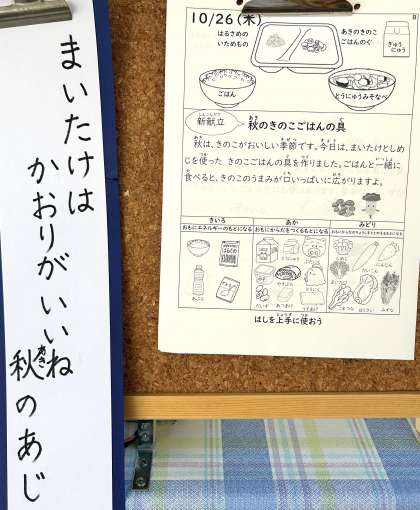 まいたけは
かおりがいいね
秋のあじ
あき
10/26(木)
はるさめの
いためもの
あきのきのこ
ごはんのぐ
ぎゅう
にゅう
ごはん
とうにゅうみそなべ
しんこんだて
新献立
秋のきのこごはんの具
秋は、きのこがおいしい季節です。今日は、まいたけとしめ
じを使った きのこごはんの具を作りました。ごはんと一緒に
食べると、きのこのうまみが口いっぱいに広がりますよ。
きいろ
あか
みどり
おもにエネルギーのもとになる
おもにからだをつくるもとになる
しめじ
にんじん
だいこん
まいたけ
あぶら
だいず
あつあげ
こまつな
はくさい
はしを上手に使おう